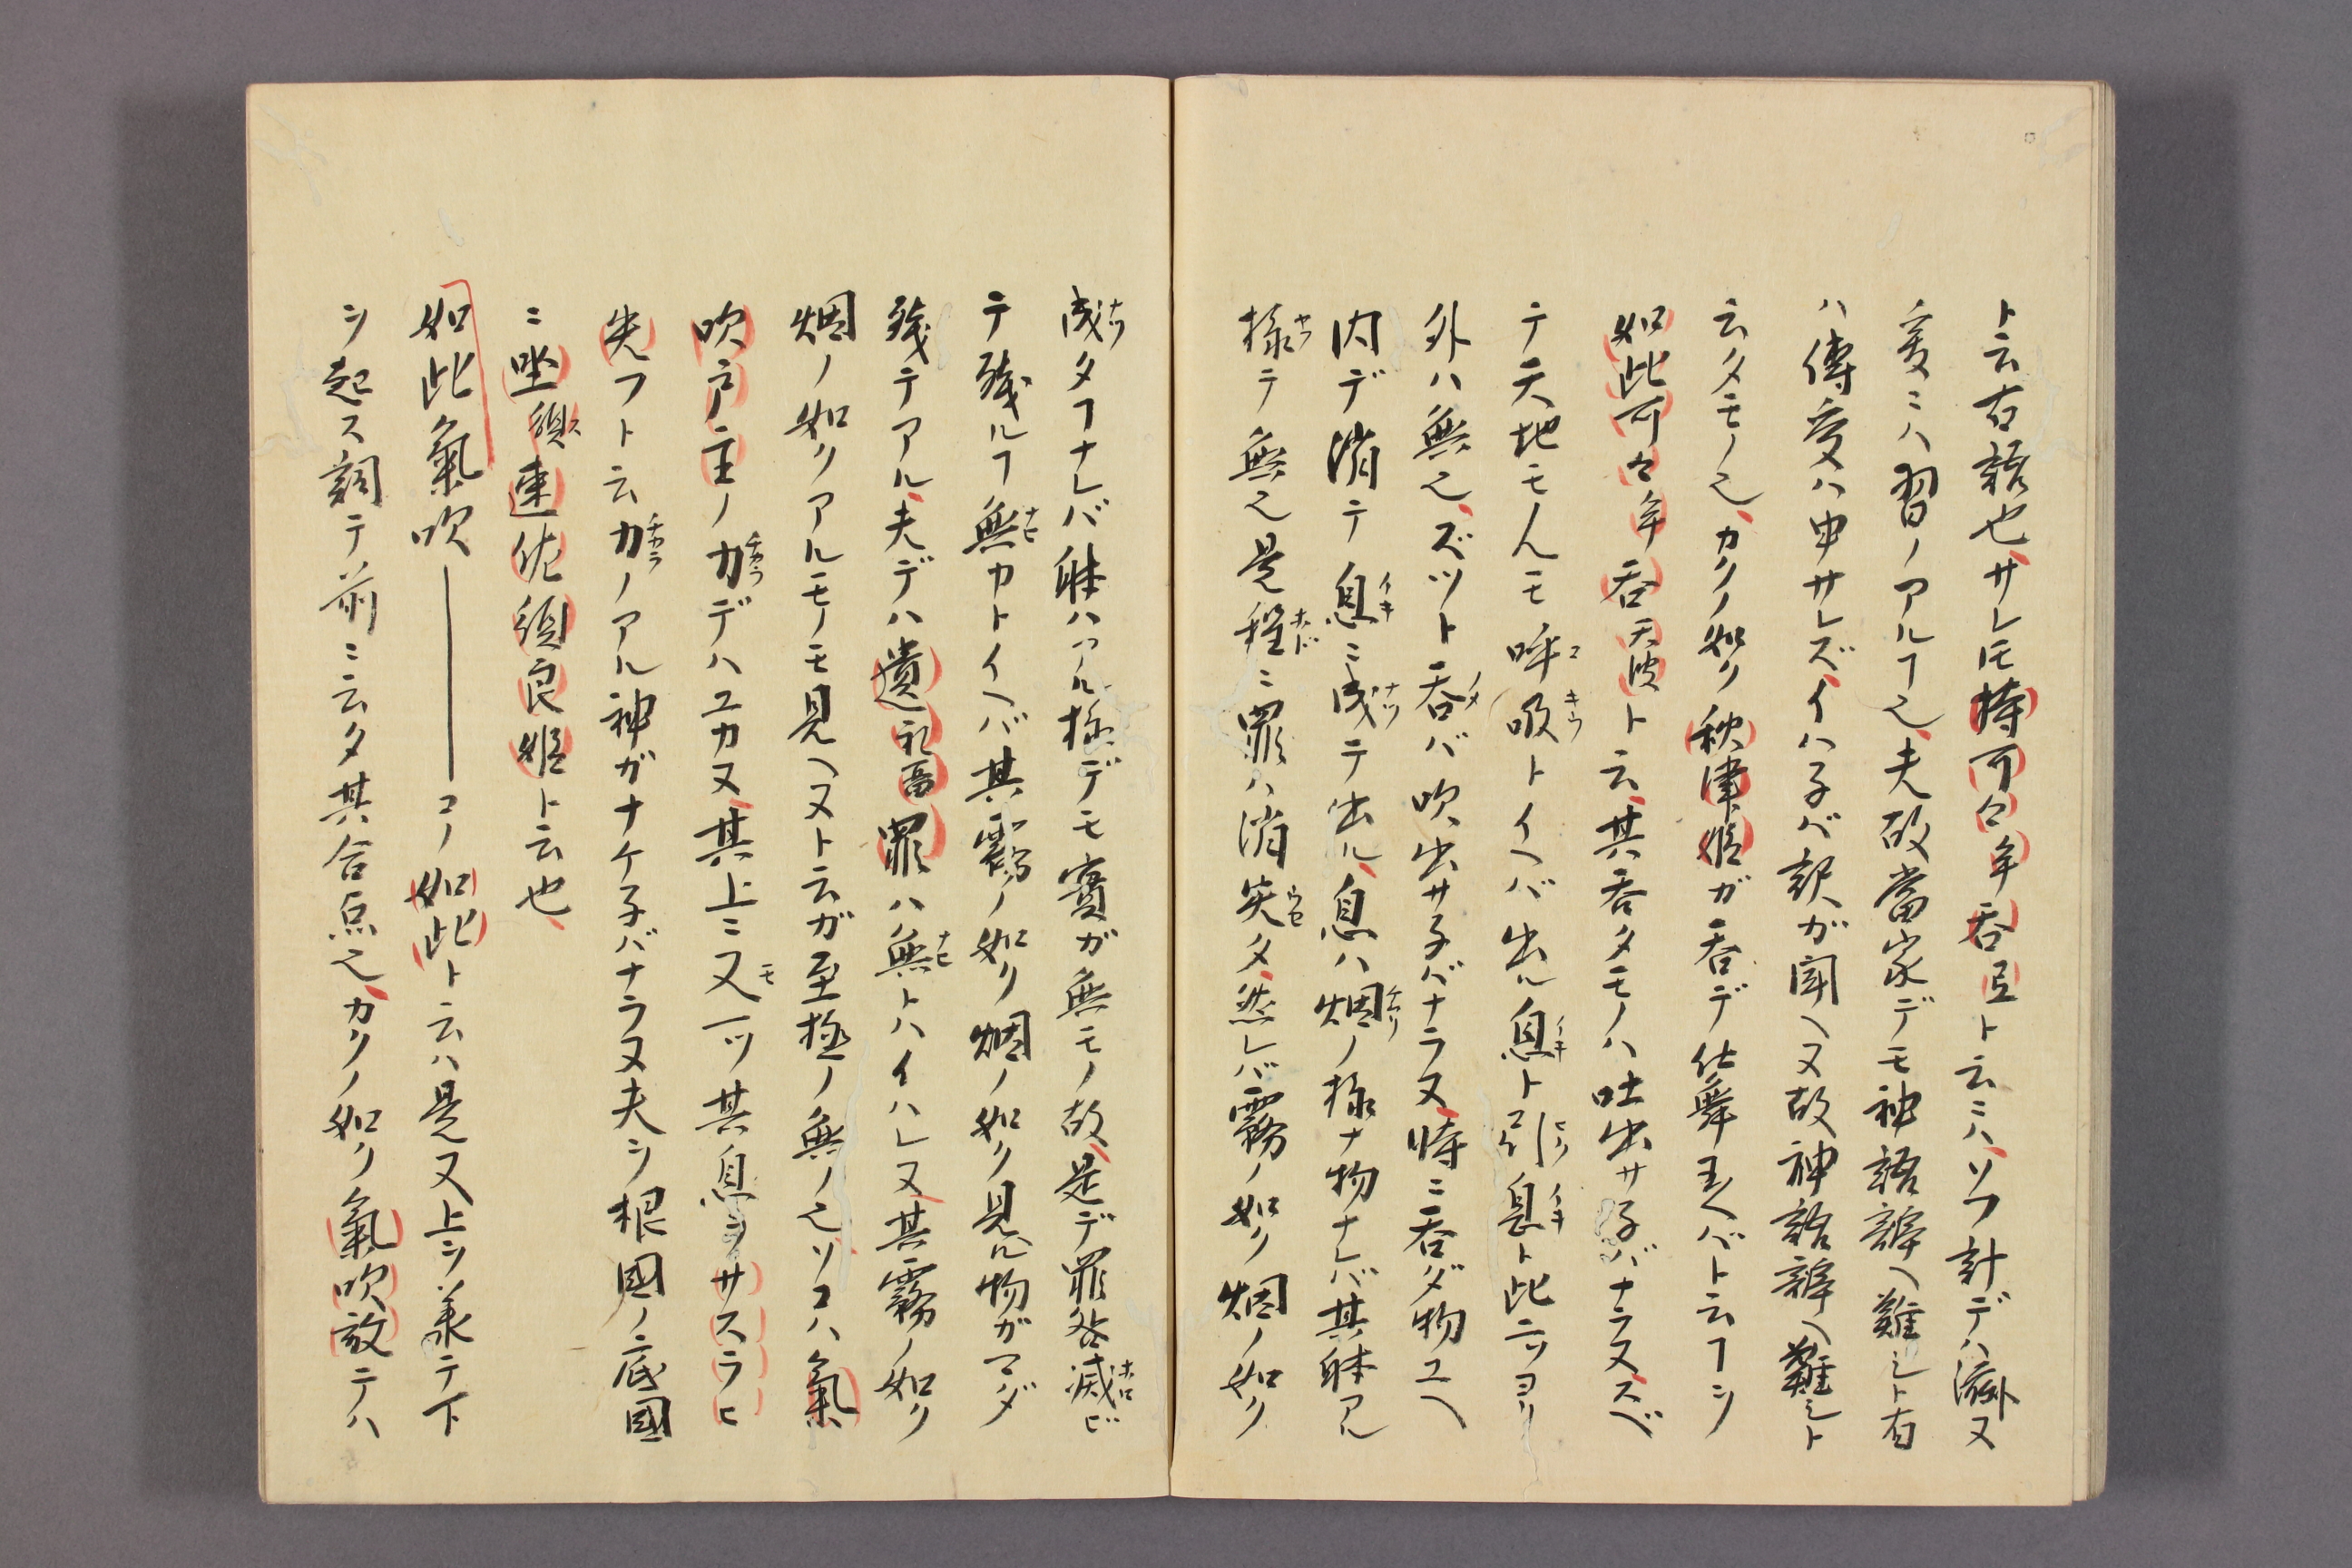 ト云古語也サレ𪜈持可々牟呑旦ト云ニハソフ計デハ済ヌ
爰ニハ習ノアルヿ也夫故當家デモ神語辭ヘ難シト有
ハ傳受ハ申サレズイハ子バ訳ガ聞ヘヌ故神語辭ヘ難シト
云タモノ也カクノ如ク秋津姫ガ呑デ仕舞玉ヘバト云ヿヲ
如此可々牟呑天波ト云其呑タモノハ吐出サ子バナラヌスベ
テ天地モ人モ呼吸コキウトイヘバ出ル息イキト引ヒク息イキト此二ツヨリ
外ハ無也ズツト呑ノメバ吹出サ子バナラヌ時ニ呑ダ物ユヘ
内デ消テ息イキニ成ナツテ出ル息ハ烟ケムリノ様ナ物ナレバ其躰アル
様ヤウテ無也是程ホドニ罪ハ消失ウセタ然レバ霧ノ如ク烟ノ如ク
成ナツタヿナレバ躰ハアル様デモ實ガ無モノ故是デ罪咎滅ホロビ
テ残ルヿ無ナヒカトイヘバ其霧ノ如ク烟ノ如ク見ル物ガマダ
残テアル夫デハ遺礼留罪ハ無ナヒトハイハレヌ其霧ノ如ク
烟ノ如クアルモノモ見ヘヌト云ガ至極ノ無ノ也ソコハ氣
吹戸主ノ力チカラデハユカヌ其上ニ又モ一ツ其息ヲサスラヒ
失フト云力チカラノアル神ガナケ子バナラヌ夫ヲ根國ノ底國
ニ坐須ス連佐須良姫ト云也
如此氣吹――コノ如此ト云ハ是又上ヲ承テ下
ヲ起ス詞テ前ニ云タ其合点也カクノ如ク氣吹放テハ